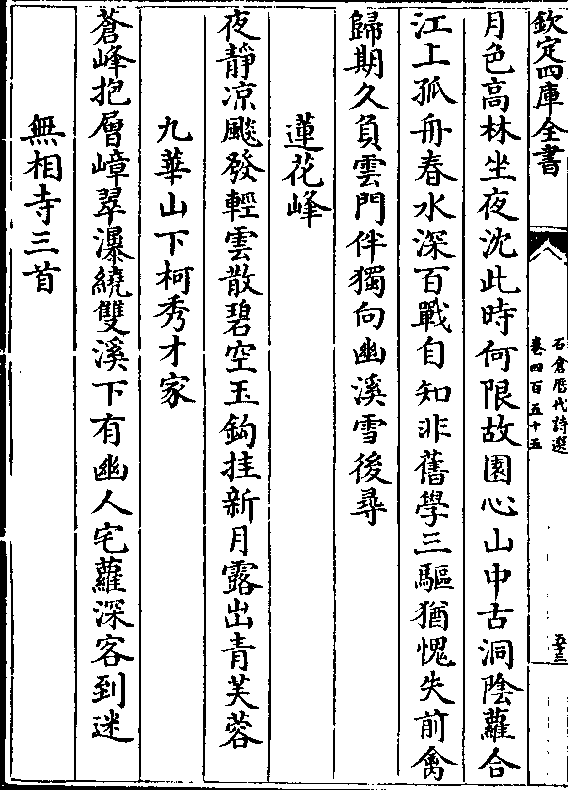 欽定四庫全書
石倉歷代詩選
卷四百五十五
五十三
月色高林坐夜沈此時何限故園心山中古洞陰蘿合
江上孤舟春水深百戰自知非舊學三驅猶愧失前禽
歸期久負雲門伴獨向幽溪雪後尋
蓮花峰
夜靜凉飈發輕雲散碧空玉鈎挂新月露出青芙蓉
九華山下柯秀才家
蒼峰抱層嶂翠瀑繞雙溪下有幽人宅蘿深客到迷
無相寺三首